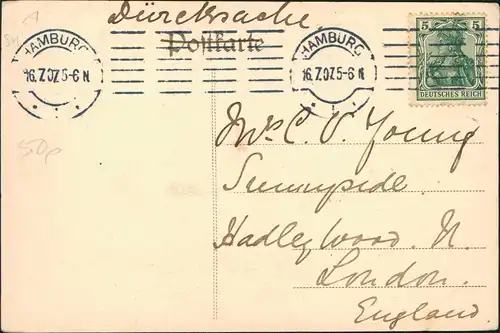 Dürcksache
Postkarte
HAMBURG
16.7.07.5-6 N
HAMBURG
16.7.07.5-6 N
5 5
DEUTSCHES REICH
50p
Mrs C. V. Young
Sunnyside.
Hadley Wood. N.
London.
England.